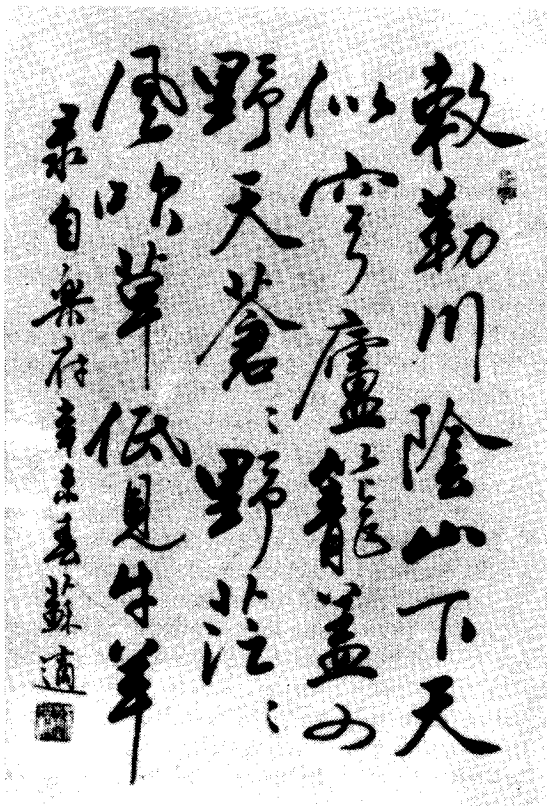 敕勒川陰山下天
似穹廬籠盖四
野天蒼〻野茫〻
風吹草低見牛羊
录自樂府辛未春蘇適